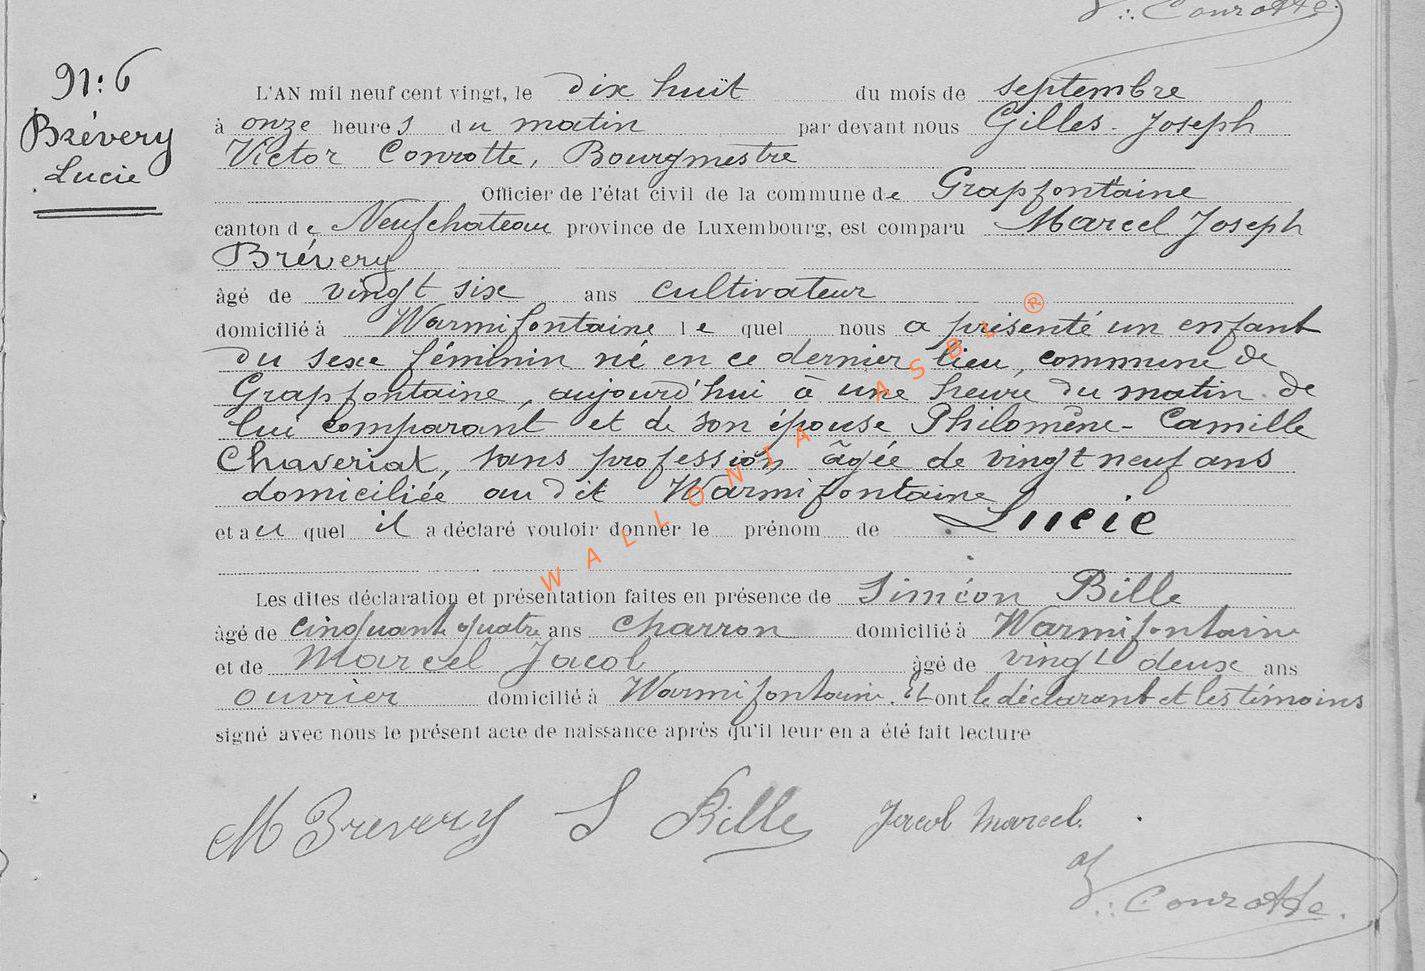 V. Conrotte.
N: 6
Brévery
Lucie
L'AN mil neuf cent vingt, le dix huit du mois de septembre
à onze heures du matin par devant nous Gilles-Joseph
Victor Conrotte, Bourgmestre
Officier de l'état civil de la commune de Grapfontaine
canton de Neufchateau province de Luxembourg, est comparu Marcel Joseph
Brévery
âgé de vingt six ans cultivateur
domicilié à Warmifontaine lequel nous a présenté un enfant
du sexe féminin né en ce dernier lieu, commune de
Grapfontaine, aujourd'hui à une heure du matin de
lui comparant et de son épouse Philomène-Camille
Chaveriat, sans profession, âgée de vingt neuf ans
domiciliée au dit Warmifontaine
et au quel il a déclaré vouloir donner le prénom de Lucie
Les dites déclaration et présentation faites en présence de Siméon Bille
âgé de cinquante quatre ans charron domicilié à Warmifontaine
et de Marcel Jacob âgé de vingt deux ans
ouvrier domicilié à Warmifontaine. Et ont le déclarant et les témoins
signé avec nous le présent acte de naissance après qu'il leur en a été fait lecture
M Brevery S Bille Jacob Marcel.
V. Conrotte.
WALLONIA ASBL ®